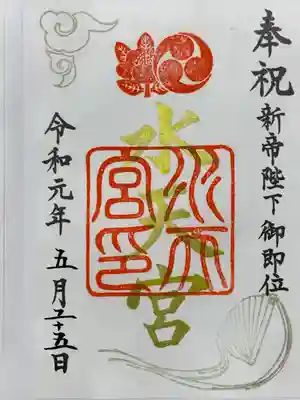 奉祝
新帝陛下御即位
水天宮
水天宮印
令和元年 五月二十五日